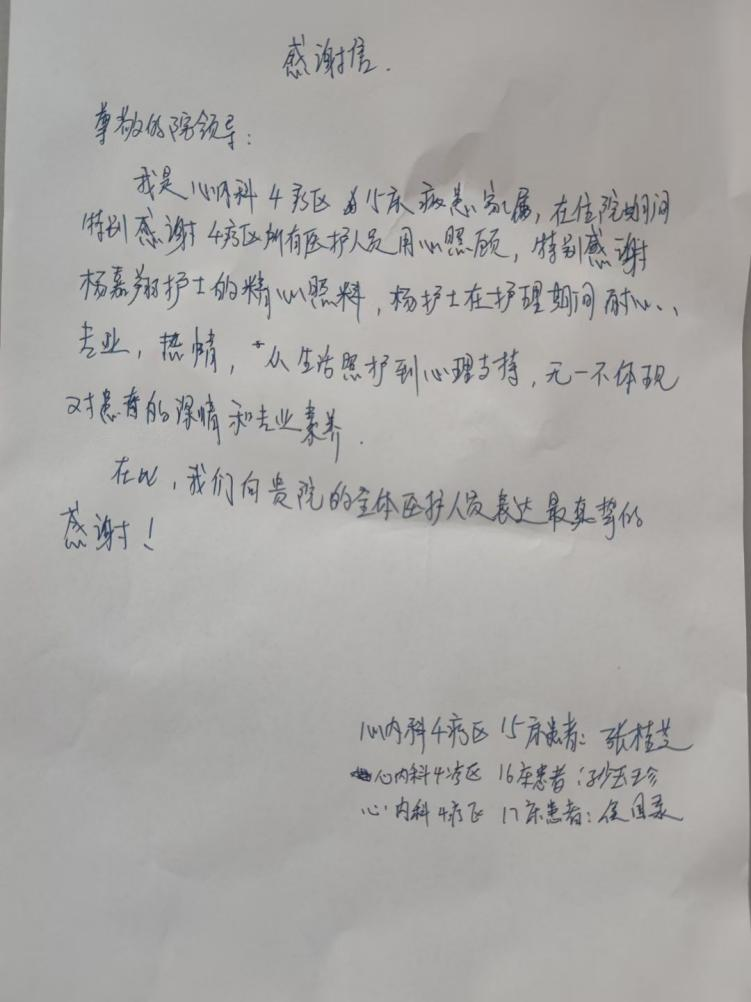 感谢信.
尊敬的院领导:
我是心内科4疗区15床病患家属,在住院期间
特别感谢4疗区所有医护人员用心照顾,特别感谢
杨嘉翔护士的精心照料,杨护士在护理期间耐心、
专业,热情,从生活照护到心理支持,无一不体现
对患者的深情和专业素养.
在此,我们向贵院的全体医护人员表达最真挚的
感谢!
心内科4疗区 15床患者:张桂芝
心内科4疗区 16床患者:孙玉珍
心内科4疗区 17床患者: